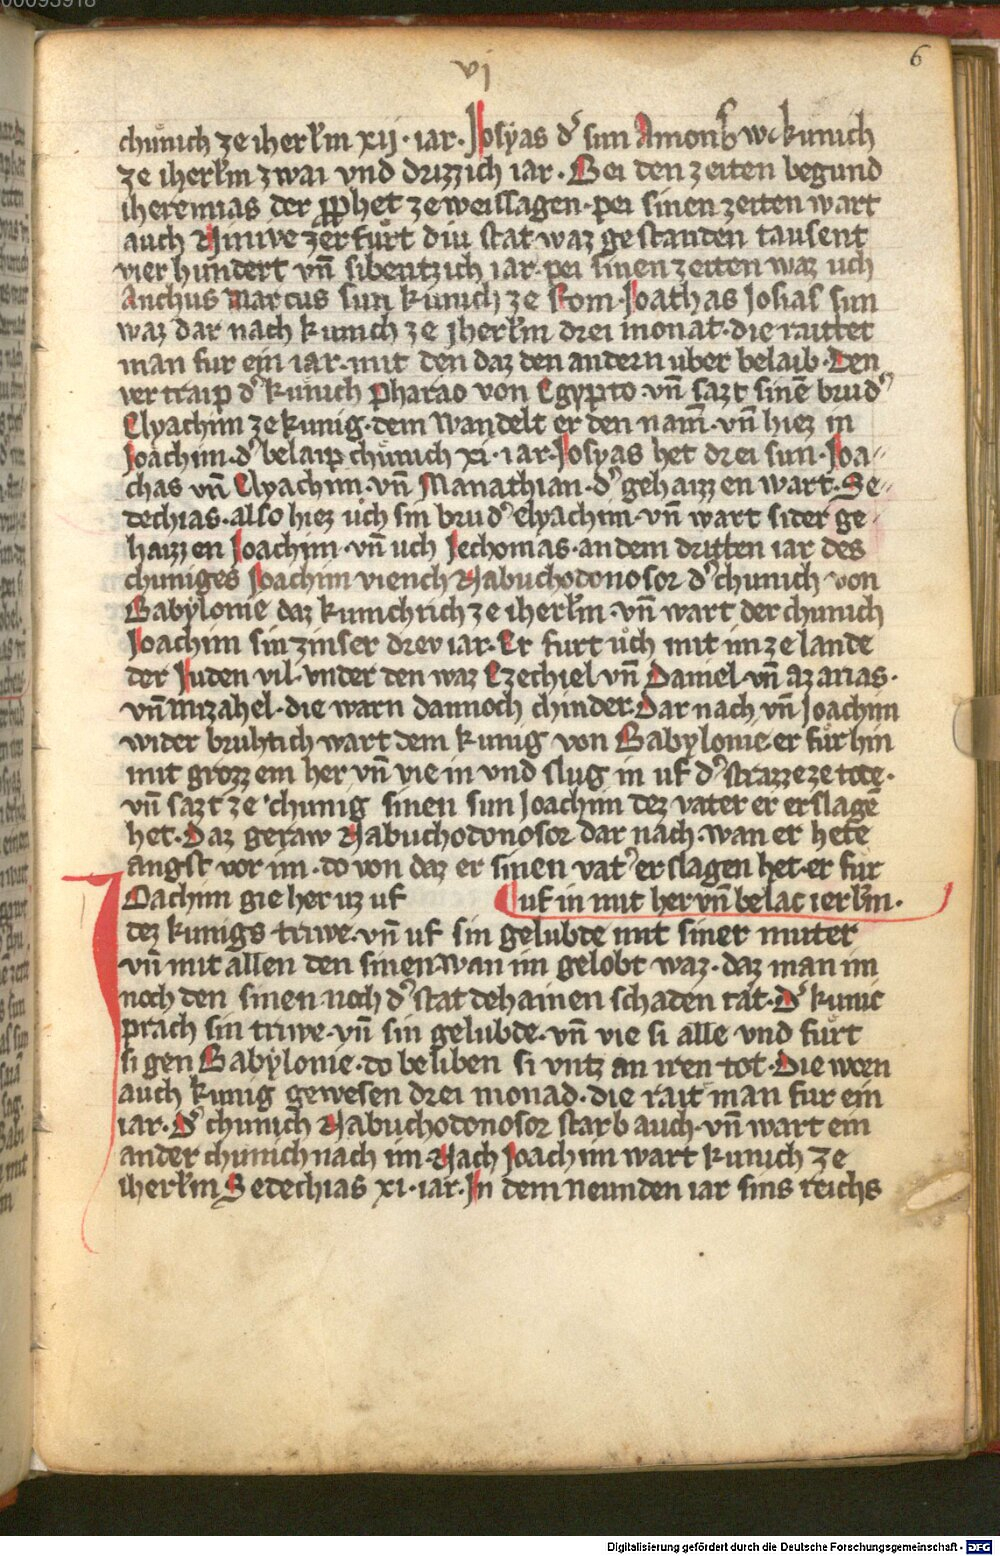 00093918
vj
6
chuͤnich ze iherlm̄ xij · iar · Josyas d᷒ sun Amons w kunich
ze iherlm̄ zwai vnd drizzich iar · Bei den zeiten begund
iheremias der prophet ze weissagen · pei sinen zeiten wart
auch Niniue zerfuͤrt diu stat waz gestanden tausent
vier hundert vn̄ sibentzich iar · pei sinen zeiten waz uch
Anchus Marcus sun kunich ze Rom · Joathas Josias sun
waz dar nach kunich ze jherlm̄ drei monat · die raittet
man fur ein iar · mit den daz den andern uber belaib · Den
vertraip d᷒ kunich Pharao von Egypto · vn̄ sazt sinē brud᷒
Elyachim ze kunig · dem wandelt er den nam̄ · vn̄ hiez in
Joachim · d᷒ belaip chuͤnich xi · iar · Josyas het drei sun · Joa⸗
chas vn̄ Elyachim · vn̄ Manathian · d᷒ gehaizzen wart · Se⸗
dechias · also hiez uͦch sin brud᷒ elyachim · vn̄ wart sider ge⸗
haizzen Joachim · vn̄ uch Jechonias · an dem dritten iar des
chuniges Joachim viench Nabuchodonosor d᷒ chunich von
Babylonie daz kunichrich ze iherlm̄ · vn̄ wart der chunich
Joachim sin zinser dreu iar · Er furt uͦch mit im ze lande
der Juden vil · vnder den waz Ezechiel vn̄ Daniel · vn̄ azarias ·
vn̄ mizahel · die warn dannoch chinder · Dar nach vn̄ Joachim
wider bruhtich wart dem kunig von Babylonie er fuͤr hin
mit grozzem her vn̄ vie in vnd slug in uf d᷒ strazze ze tode ·
vn̄ sazt ze chunig sinen sun Joachim dez vater er erslagē
het · Daz geraw Nabuchodonosor dar nach · wan er hete
angst vor im · do von daz er sinen vat᷒ erslagen het · er fuͤr
Joachim gie her uz uf
uf in mit her vn̄ belac ierlm̄ ·
dez kunigs triwe · vn̄ uf sin gelubde mit siner muter
vn̄ mit allen den sinen · wan im gelobt waz · daz man im
noch den sinen noch d᷒ stat dehainen schaden tat · D᷒ kunic
prach sin triwe · vn̄ sin gelubde · vn̄ vie si alle vnd fuͤrt
si gen Babylonie · do beliben si vntz an iren tot · Die wern
auch kunig gewesen drei monad · die rait man fur ein
iar · D᷒ chunich Nabuchodonosor starb auch · vn̄ wart ein
ander chunich nach im · Nach Joachim wart kunich ze
iherlm̄ Sedechias xi · iar · In dem neunden iar sins reichs
Digitalisierung gefördert durch die Deutsche Forschungsgemeinschaft - DFG